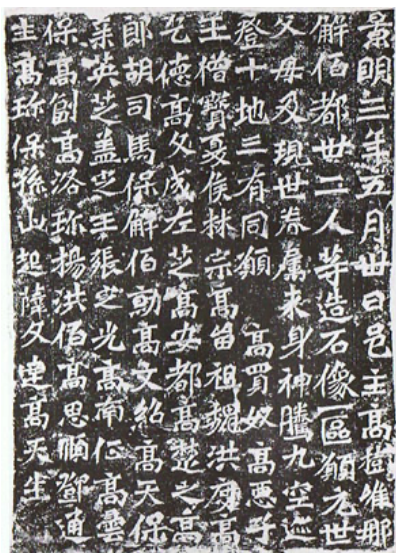 景明三年五月卅日邑主高樹維那
解佰都卅二人等造石像一區願元世
父母及現世眷屬來身神騰九空迹
登十地三有同願 高買奴高惡子
王僧寶夏侯林宗高留祖魏洪度高
乞德高文成左芝高安都高楚之高
郎胡司馬保解佰勍高文紹高天保
英芝盖定王張定光高南征高雲
保高副高洛珍楊洪佰高思順鄧通
生高珍保孫山起薛文達高天生